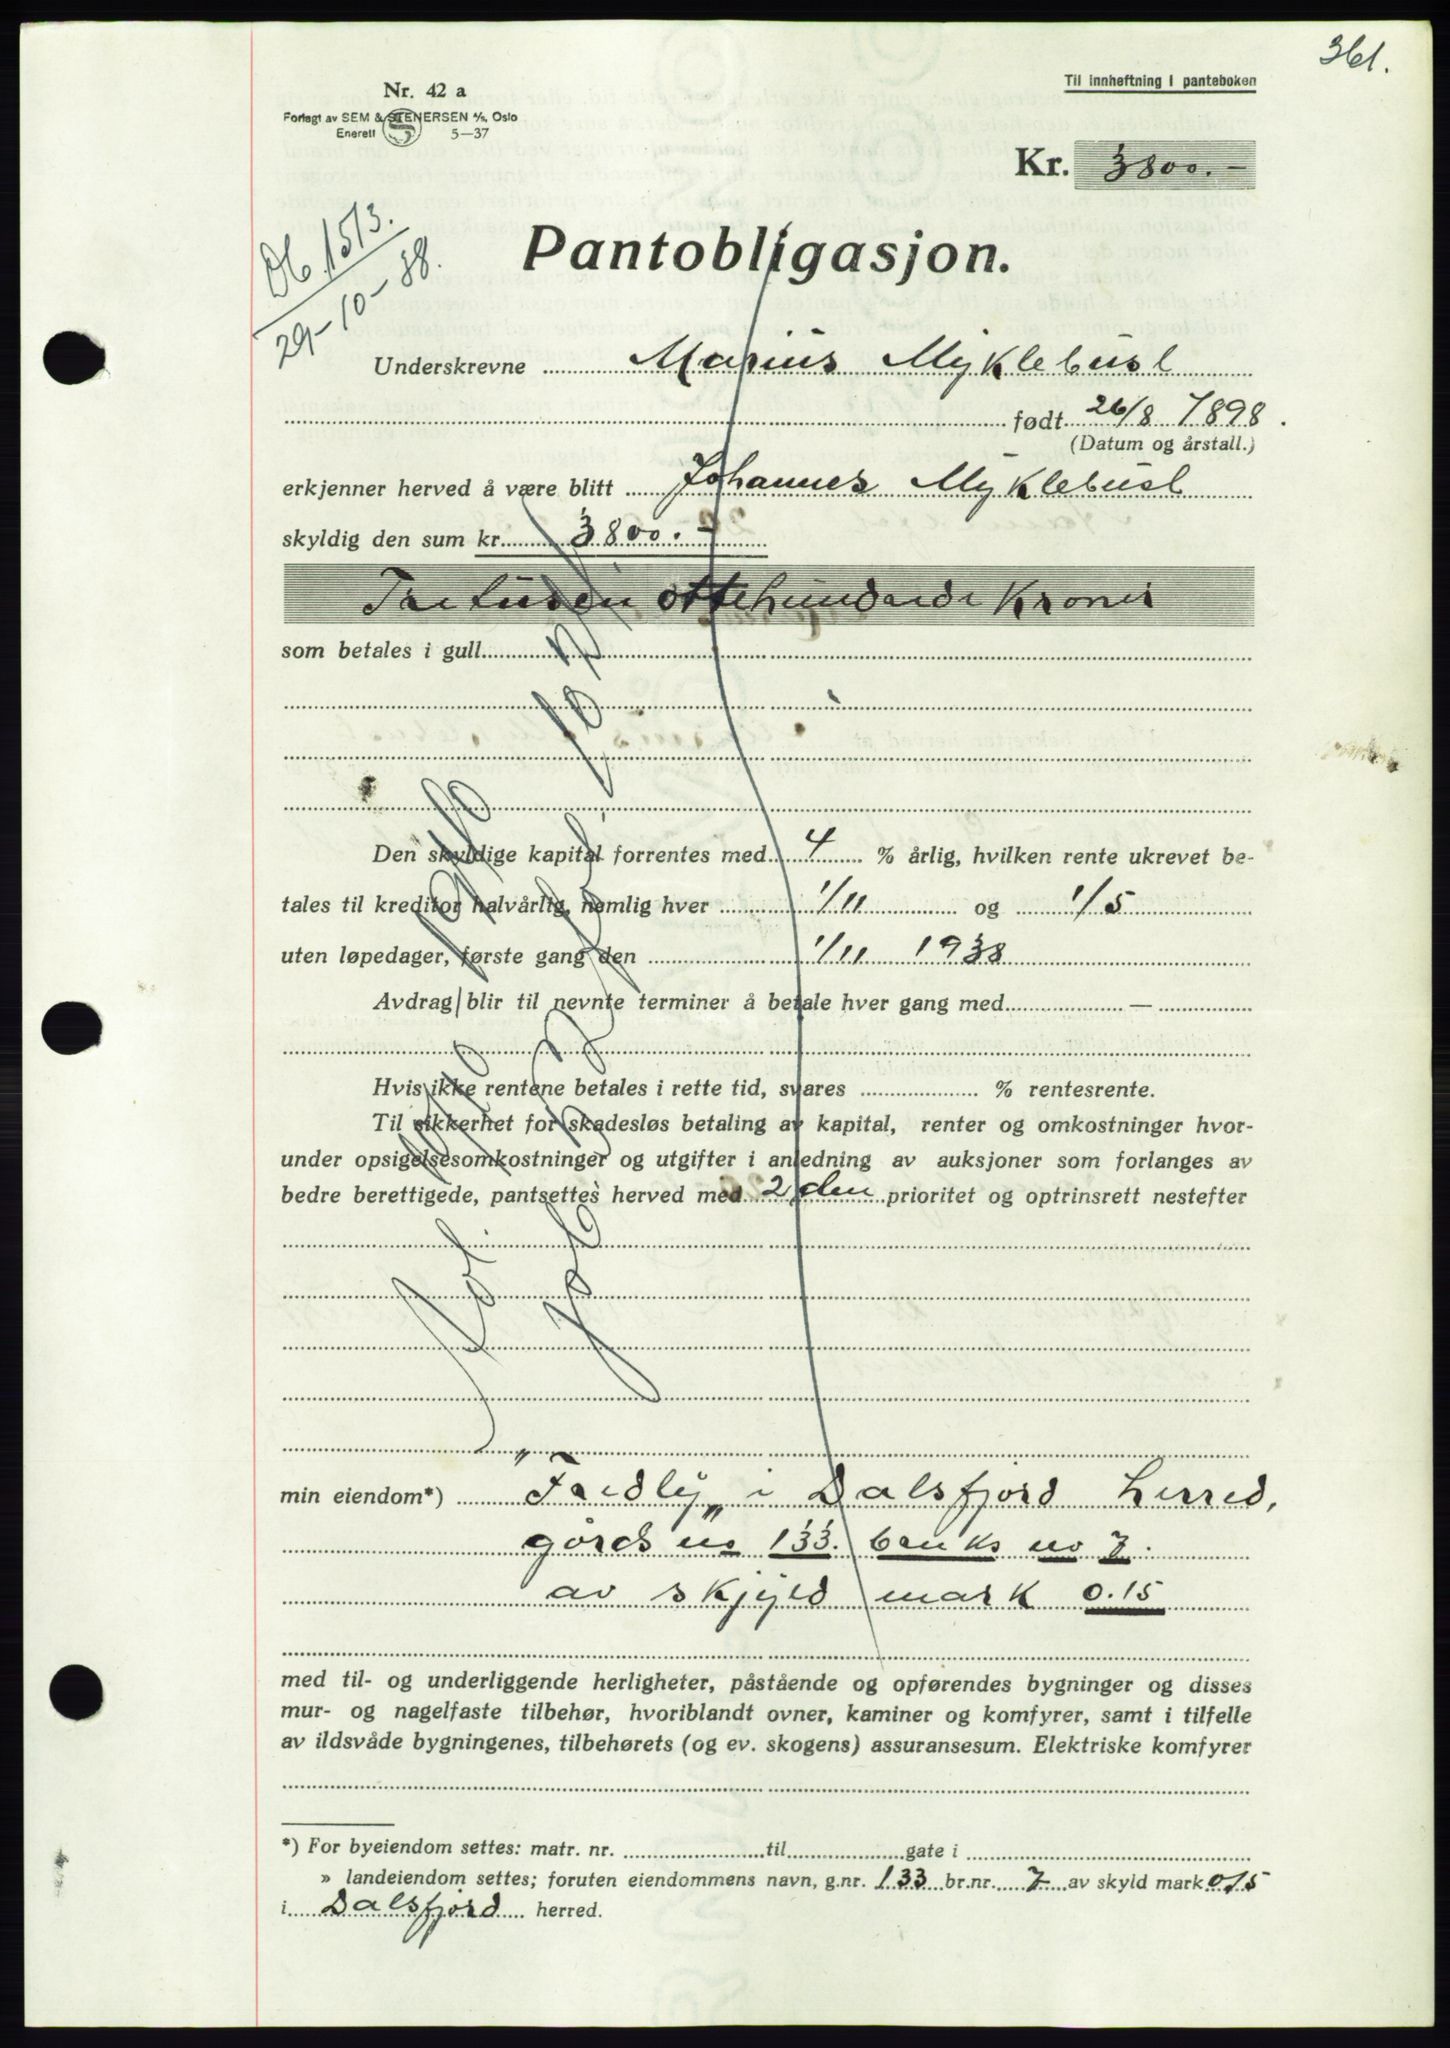 361.
Til innheftning i panteboken
Nr. 42 a
Forlagt av SEM & STENERSEN A/S, Oslo
Enerett 5—37
Kr. 3800.-
Db. 1513.
29-10-38.
Pantobligasjon.
Underskrevne Marius Myklebust
født 26/8 1898.
(Datum og årstall.)
erkjenner herved å være blitt Johannes Myklebust
skyldig den sum kr. 3800.-
Tretusen ottehundrede Kroner
som betales i gull
Den skyldige kapital forrentes med 4 % årlig, hvilken rente ukrevet be-
tales til kreditor halvårlig, nemlig hver 1/11 og 1/5
uten løpedager, første gang den 1/11 1938
Avdrag blir til nevnte terminer å betale hver gang med —
Hvis ikke rentene betales i rette tid, svares % rentesrente.
Til sikkerhet for skadesløs betaling av kapital, renter og omkostninger hvor-
under opsigelsesomkostninger og utgifter i anledning av auksjoner som forlanges av
bedre berettigede, pantsettes herved med 2den prioritet og optrinsrett nestefter
min eiendom*) "Fredly" i Dalsfjord herred,
gårds no 133. bruks no 7.
av skjyld mark 0.15
med til- og underliggende herligheter, påstående og opførendes bygninger og disses
mur- og nagelfaste tilbehør, hvoriblandt ovner, kaminer og komfyrer, samt i tilfelle
av ildsvåde bygningenes, tilbehørets (og ev. skogens) assuransesum. Elektriske komfyrer
*) For byeiendom settes: matr. nr. til gate i
» landeiendom settes; foruten eiendommens navn, g.nr. 133 br.nr. 7 av skyld mark 0,15
i Dalsfjord herred.